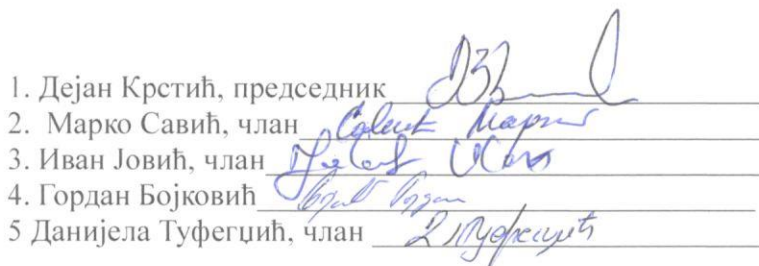 1. Дејан Крстић, председник
2. Марко Савић, члан Савић Марко
3. Иван Јовић, члан Јовић Иван
4. Гордан Бојковић
5 Данијела Туфегџић, члан